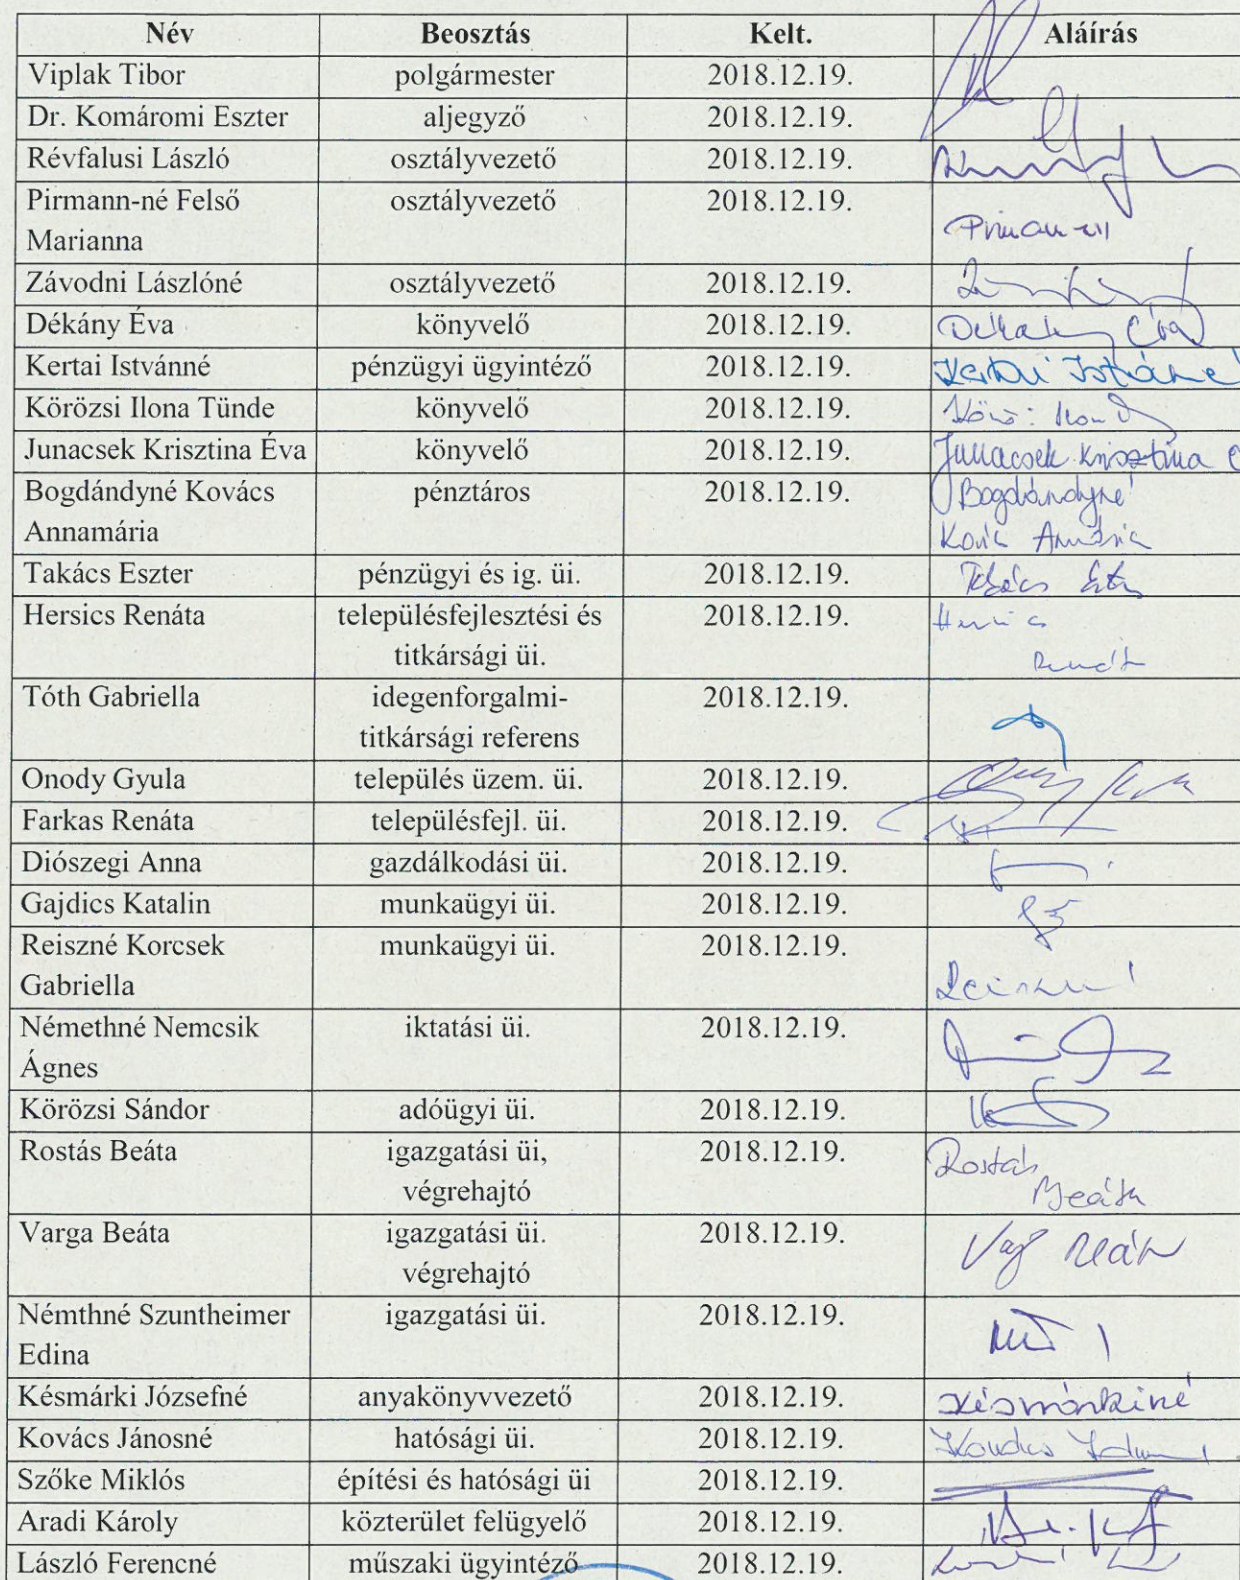 Név Beosztás Kelt. Aláírás
Viplak Tibor polgármester 2018.12.19.
Dr. Komáromi Eszter aljegyző 2018.12.19.
Révfalusi László osztályvezető 2018.12.19.
Pirmann-né Felső osztályvezető 2018.12.19.
Marianna
Závodni Lászlóné osztályvezető 2018.12.19.
Dékány Éva könyvelő 2018.12.19. Dékány Éva
Kertai Istvánné pénzügyi ügyintéző 2018.12.19. Kertai Istvánné
Körözsi Ilona Tünde könyvelő 2018.12.19.
Junacsek Krisztina Éva könyvelő 2018.12.19. Junacsek Krisztina É
Bogdándyné Kovács pénztáros 2018.12.19. Bogdándyné
Annamária Kovács Annamária
Takács Eszter pénzügyi és ig. üi. 2018.12.19. Takács Eszter
Hersics Renáta településfejlesztési és 2018.12.19. Hersics
titkársági üi. Renáta
Tóth Gabriella idegenforgalmi- 2018.12.19.
titkársági referens
Onody Gyula település üzem. üi. 2018.12.19.
Farkas Renáta településfejl. üi. 2018.12.19.
Diószegi Anna gazdálkodási üi. 2018.12.19.
Gajdics Katalin munkaügyi üi. 2018.12.19.
Reiszné Korcsek munkaügyi üi. 2018.12.19.
Gabriella Reiszné
Némethné Nemcsik iktatási üi. 2018.12.19.
Ágnes
Körözsi Sándor adóügyi üi. 2018.12.19.
Rostás Beáta igazgatási üi, 2018.12.19. Rostás
végrehajtó Beáta
Varga Beáta igazgatási üi. 2018.12.19. Varga Beáta
végrehajtó
Némthné Szuntheimer igazgatási üi. 2018.12.19.
Edina
Késmárki Józsefné anyakönyvvezető 2018.12.19. Késmárkiné
Kovács Jánosné hatósági üi. 2018.12.19. Kovács Jánosné
Szőke Miklós építési és hatósági üi 2018.12.19.
Aradi Károly közterület felügyelő 2018.12.19.
László Ferencné műszaki ügyintéző 2018.12.19.